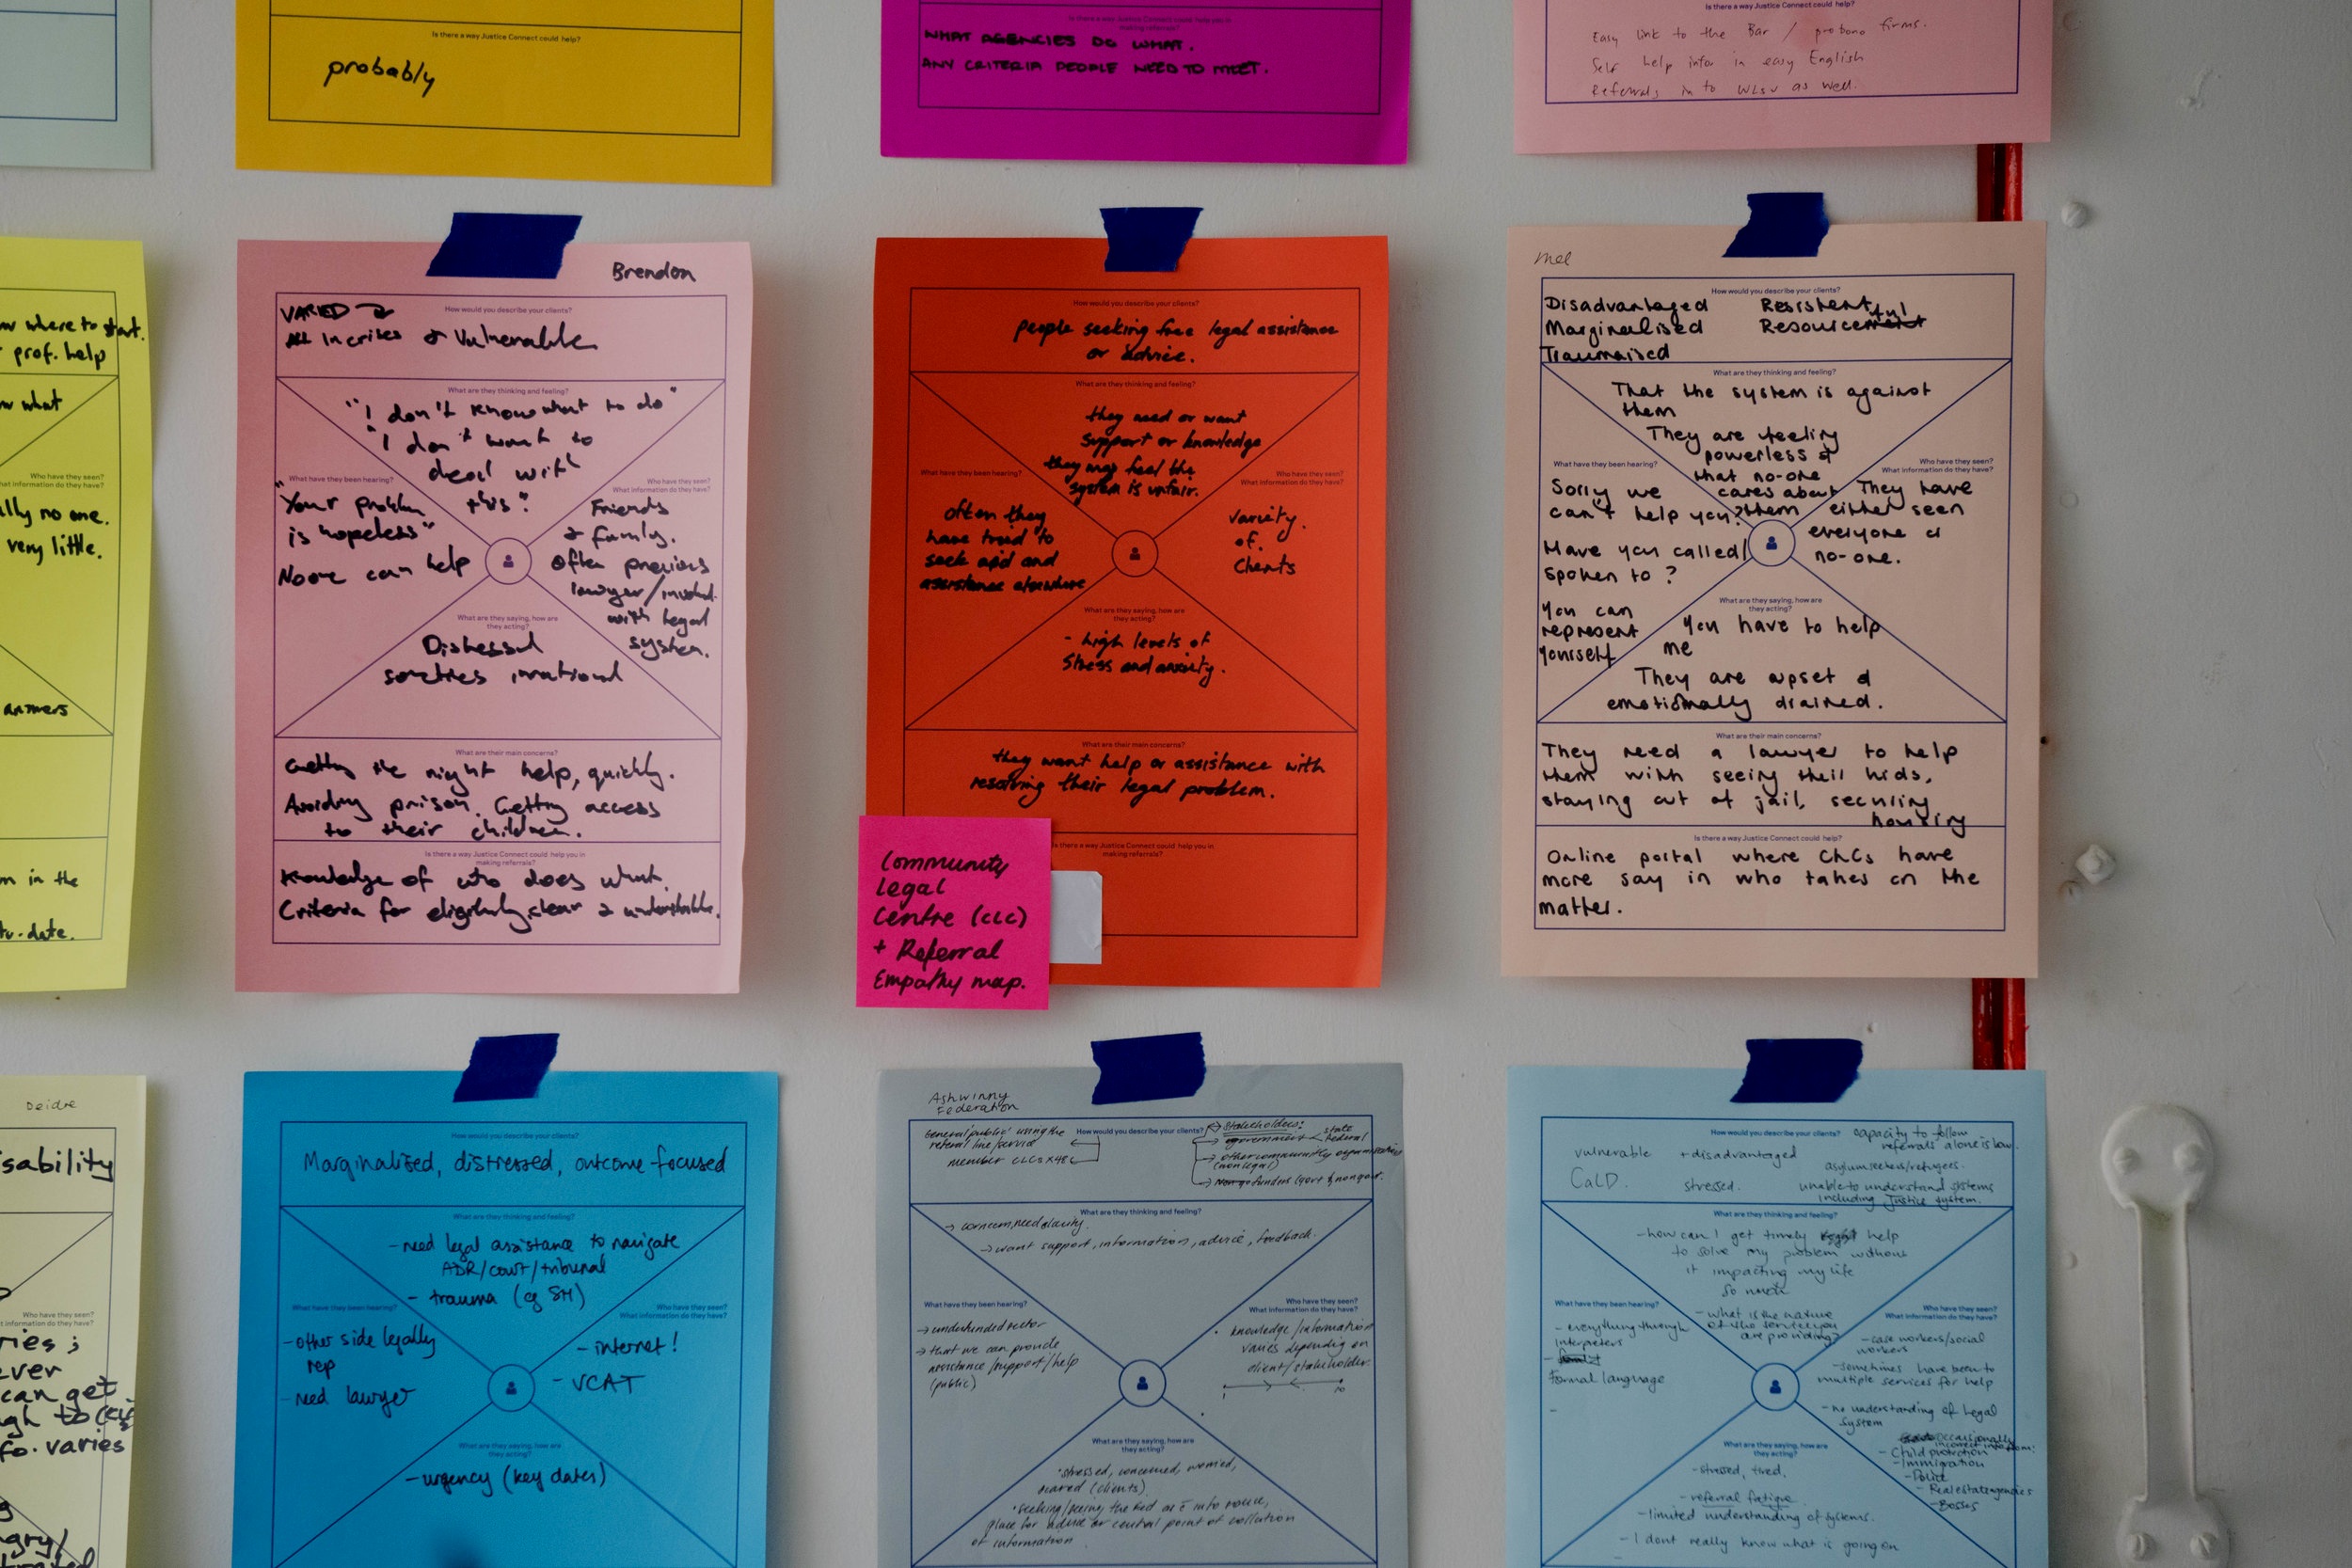 Is there a way Justice Connect could help?
probably
Is there a way Justice Connect could help you in
making referrals?
WHAT AGENCIES DO WHAT.
ANY CRITERIA PEOPLE NEED TO MEET.
Is there a way Justice Connect could help?
Easy link to the Bar / probono firms.
Self help info in easy English
Referrals in to WLSV as well.
where to start.
prof. help
what
Who have they seen?
What information do they have?
no one.
very little.
answers
in the
date.
Brendon
How would you describe your clients?
VARIED
All In crises & Vulnerable
What are they thinking and feeling?
"I don't know what to do"
"I don't want to
deal with
this."
What have they been hearing?
"Your problem
is hopeless"
Noone can help
Who have they seen?
What information do they have?
Friends
& family.
Often previous
lawyer/involv.
with legal
system.
What are they saying, how are
they acting?
Distressed
sometimes irrational
What are their main concerns?
Getting the right help, quickly.
Avoiding prison. Getting access
to their children.
Is there a way Justice Connect could help you in
making referrals?
Knowledge of who does what.
Criteria for eligibility, clear & understandable.
How would you describe your clients?
people seeking free legal assistance
or advice.
What are they thinking and feeling?
they need or want
support or knowledge
they may feel the
system is unfair.
What have they been hearing?
often they
have tried to
seek aid and
assistance elsewhere
Who have they seen?
What information do they have?
variety
of
clients
What are they saying, how are
they acting?
- high levels of
stress and anxiety.
What are their main concerns?
they want help or assistance with
resolving their legal problem.
Is there a way Justice Connect could help you in
making referrals?
Community
Legal
Centre (CLC)
+ Referral
Empathy map.
Mel
How would you describe your clients?
Disadvantaged Resistent
Marginalised Resourceful
Traumaised
What are they thinking and feeling?
That the system is against
them
They are feeling
powerless &
that no-one
cares about
them
What have they been hearing?
Sorry we
can't help you?
Have you called/
spoken to?
You can
represent
yourself
Who have they seen?
What information do they have?
They have
either seen
everyone or
no-one.
What are they saying, how are
they acting?
You have to help
me
They are upset &
emotionally drained.
What are their main concerns?
They need a lawyer to help
them with seeing their kids,
staying out of jail, securing
housing
Is there a way Justice Connect could help?
Online portal where CLCs have
more say in who takes on the
matter.
Deidre
Who have they seen?
What information do they have?
can get
varies
How would you describe your clients?
Marginalised, distressed, outcome focused
What are they thinking and feeling?
- need legal assistance to navigate
ADR/court/tribunal
- trauma (eg SH)
What have they been hearing?
- other side legally
rep
- need lawyer
Who have they seen?
What information do they have?
- internet!
- VCAT
What are they saying, how are
they acting?
- urgency (key dates)
Ashwinny
Federation
How would you describe your clients?
'General public' using the
referral line/service
member CLCs x48
Stakeholders:
government
state
federal
other community organisations
(non legal)
funders (govt & nongovt.
What are they thinking and feeling?
→ concern, need clarity.
→ want support, information, advice, feedback.
What have they been hearing?
→ underfunded sector
→ that we can provide
assistance/support/help
(public)
Who have they seen?
What information do they have?
knowledge/information
varies depending on
client/stakeholder.
1 10
What are they saying, how are
they acting?
• stressed, concerned, worried,
scared (clients)
place for advice or central point of collation
of information
How would you describe your clients?
capacity to follow
referrals alone is low.
vulnerable + disadvantaged
asylum seekers/refugees.
CaLD. stressed.
unable to understand systems
including Justice system.
What are they thinking and feeling?
- how can I get timely help
to solve my problem without
it impacting my life
so much
- what is the nature
of the service you
are providing?
What have they been hearing?
- everything through
interpreters
-
Formal language
-
Who have they seen?
What information do they have?
- case workers/social
workers
- sometimes have been to
multiple services for help
- no understanding of legal
system
occasionally
incorrect info from:
- Child protection
- Immigration
- Police
- Real estate agencies
- Bosses
What are they saying, how are
they acting?
- stressed, tired.
- referral fatigue
- limited understanding of systems.
- I dont really know what is going on